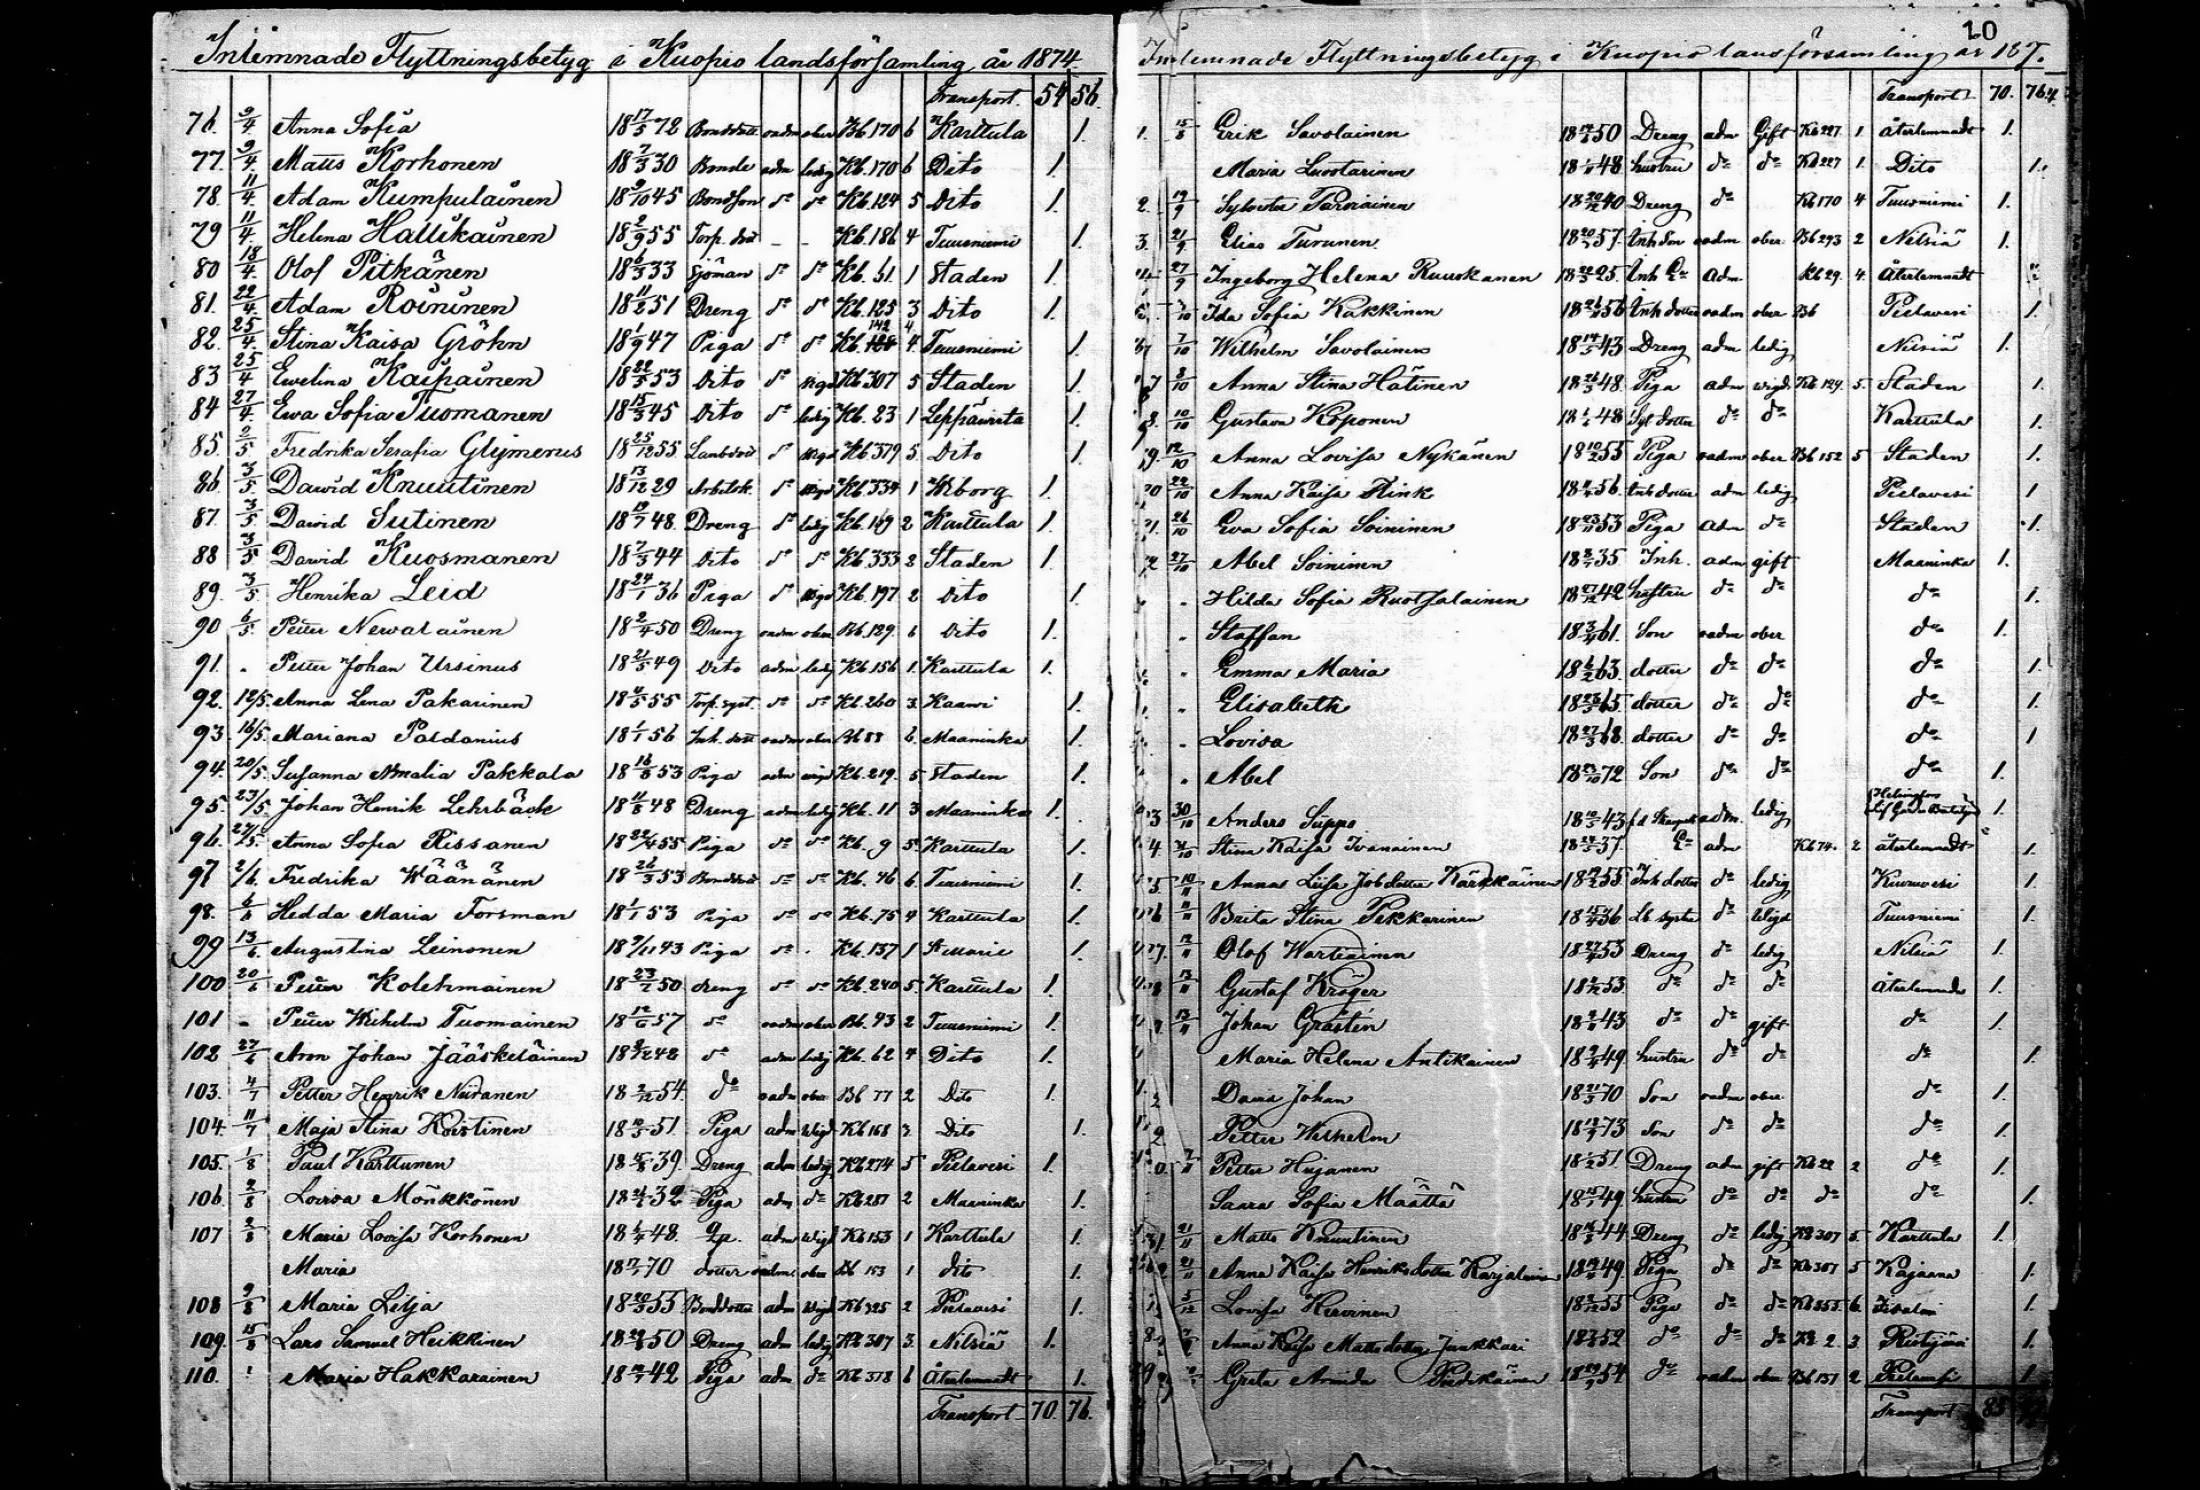 Inlemnade Flyttningsbetyg i Kuopio landsförsamling år 1874.
Transport. 54 56.
76. 9/4 Anna Sofia 18 17/5 72 Bonddott oadm ober Bb 170 6 Karttula 1.
77. 9/4 Matts Korhonen 18 7/3 30 Bonde adm ledig Kb. 170 6 Dito 1.
78. 11/4 Adam Kumpulainen 18 9/10 45 Bondson do do Kb. 124 5 Dito 1.
79 11/4 Helena Hallikainen 18 2/9 55 Torp. dot - - Kb. 186 4 Tuusniemi 1.
80 18/4 Olof Pitkänen 18 6/3 33 Sjöman do do Kb. 51 1 Staden 1.
81. 22/4 Adam Roininen 18 11/2 51 Dreng do do Kb. 125 3 Dito 1.
82. 25/4 Stina Kaisa Gröhn 18 1/9 47 Piga do do Kb. 142 4 Tuusniemi 1.
83 25/4 Ewelina Kaipainen 18 22/5 53 Dito do wigd Kb 307 5 Staden 1.
84 27/4 Ewa Sofia Tuomanen 18 15/3 45 Dito do ledig Kb. 23 1 Leppävirta 1.
85. 2/5 Fredrika Serafia Glijmerus 18 25/12 55 do wigd Kb 379 5. Dito 1.
86 3/5 Dawid Knuutinen 18 13/12 29 Arbetsk. do wigd Kb. 334 1 Wiborg 1.
87. 3/5 Dawid Sutinen 18 19/7 48. Dreng do ledig Kb. 169 2 Karttula 1.
88 3/5 Dawid Kuosmanen 18 7/3 44 Dito do do Kb. 333 2 Staden 1.
89. 3/5 Henrika Leid 18 24/1 36 Piga do wigd Kb. 197 2 Dito 1.
90 6/5. Petter Newalainen 18 2/4 50 Dreng oadm ober Bb. 129. 6 Dito 1.
91. " Petter Johan Ursinus 18 21/5 49 Dito adm ledig Kb 156 1. Karttula 1.
92. 12/5. Anna Lena Pakarinen 18 4/5 55 Torp. syst. do do Kb. 260 3. Kaawi 1.
93. 16/5. Mariana Paldanius 18 1/1 56 Inh. dott oadm ober Bb 88 6. Maaninka 1.
94. 20/5. Susanna Amalia Pakkala 18 16/8 53 Piga adm wigd Kb. 219. 5 Staden 1.
95. 23/5 Johan Henrik Lehrbäck 18 11/8 48 Dreng adm ledig Kb. 11 3 Maaninka 1.
96. 27/5. Anna Sofia Rissanen 18 22/4 55 Piga do do Kb. 9 5. Karttula 1.
97 2/6. Fredrika Wäänänen 18 26/3 53 Bonddott do do Kb. 46 6. Tuusniemi 1.
98. 6/6 Hedda Maria Forsman 18 1/1 53 Piga do do Kb. 75 4 Karttula 1.
99 13/6. Augustina Leinonen 18 9/11 43 Piga do . Kb. 137 1 1.
100 20/6 Petter Kolehmainen 18 23/2 50 dreng do do Kb. 240 5. Karttula 1.
101 " Petter Wilhelm Tuomainen 18 12/6 57 do oadm ober Bb. 93 2 Tuusniemi 1.
102 27/6 Aron Johan Jääskeläinen 18 9/12 42 do adm ledig Kb. 62 4 Dito 1.
103. 4/7 Petter Henrik Niiranen 18 2/12 54. do oadm ober Bb 77 2 Dito 1.
104. 11/7 Maja Stina Koistinen 18 12/5 51. Piga adm wigd Kb 168 3. Dito 1.
105. 1/8 Paul Karttunen 18 15/8 39. Dreng adm ledig Kb 274 5 Pielavesi 1.
106 2/8 Lovisa Mönkkönen 18 24/1 32 Piga adm do Kb 287 2 Maaninka 1.
107 2/8 Maria Lovisa Korhonen 18 4/4 48. adm wigd Kb 153 1 Karttula 1.
Maria 18 17/1 70 dotter oadm ober Bb 153 1 dito 1.
108 9/8 Maria Lilja 18 20/3 55 Bonddotter adm wigd Kb 325 2 Pielavesi 1.
109. 15/8 Lars Samuel Heikkinen 18 29/8 50 Dreng adm ledig Kb 307 3. Nilsiä 1.
110. Maria Hakkarainen 18 12/7 42 Piga adm do Kb 378 6 Återlemnadt 1.
Transport 70. 76.
10
Inlemnade Flyttningsbetyg i Kuopio landsförsamling år 187.
Transport 70. 76.
1. 15/8 Erik Savolainen 50 Dreng adm Gift Kb 227 1 återlemnadt 1.
Maria Luostarinen 48 hustru do do Kb 227 1. Dito 1.
2. 19/9 Sylvester Parviainen 18 20/12 40 Dreng do Kb 170 4 Tuusniemi 1.
3. 21/9 Elias Turunen 57. Inh Son oadm ober. Bb 293 2 Nilsiä 1.
27/9 Ingeborg Helena Ruuskanen 25. Inh adm Kb 29. 4. återlemnadt
/10 Ida Sofia Kakkinen 56 Inh dotter oadm ober Bb Pielavesi 1.
7/10 Wilhelm Savolainen 18 14/5 43 Dreng adm ledig Nilsiä 1.
7 8/10 Anna Stina Hätinen 18 26/3 48. Piga adm wigd Kb 129. 5. Staden 1.
8. 10/10 Gustava Koponen 48 dotter do do Karttula 1.
9. 12/10 Anna Lovisa Nykänen 18 10/2 55 Piga oadm ober Bb 152 5 Staden 1.
22/10 Anna Kaisa Flink 56. Inh dotter adm ledig Pielavesi 1
26/10 Eva Sofia Soininen 18 23/11 53 Piga adm do Staden 1.
2 27/10 Abel Soininen 35 Inh. adm gift Maaninka 1.
" Hilda Sofia Ruotsalainen 18 27/12 42 hustru do do do 1.
" Staffan 18 3/4 61. Son oadm ober do 1.
" Emma Maria 18 6/2 63. dotter do do do 1.
" Elisabeth 18 23/5 65 dotter do do do 1.
" Lovisa 18 27/3 68. dotter do do do 1
" Abel 18 23/10 72 Son do do do 1.
3 30/10 Anders Suppo 43 adm. ledig Helsingfors 1.
4. /10 Stina Kaisa Ivanainen 18 24/5 37. adm Kb 74. 2 återlemnadt 1.
5 10/11 Anna Luisa Jobsdotter Kärkkäinen 55 Inh dotter do ledig Kiuruvesi 1.
6 11/11 Brita Stina Pekkarinen 18 15/4 36 do Tuusniemi 1.
7. 12/11 Olof Wartiainen 18 27/4 53 Dreng do ledig Nilsiä 1.
8 13/11 Gustaf Kröger 53 do do do Återlemnadt 1.
13/11 Johan Grästén 43 do do gift do 1.
Maria Helena Antikainen 49 hustru do do do 1.
David Johan 18 21/3 70 Son oadm ober do 1.
Petter Wilhelm 73 Son do do do 1.
Petter Hujanen 51 Dreng adm gift Kb 22 2 do 1.
Saara Sofia Määttä 49 hustru do do do do 1.
21/11 Matts Knuutinen 44 Dreng do ledig Kb 307 5. Karttula 1.
21/11 Anna Kaisa Henriksdotter Karjalainen 49. Piga do do Kb 307 5 Kajaana 1.
5/12 Lovisa Hirvinen 55 Piga do do Kb 355. 6 Iisalmi 1.
8 Anna Kaisa Mattsdotter Junkkari 52 do do do Kb 2. 3. Ristijärvi 1.
9 Greta 54 do oadm ober Bb 137 2 Pielavesi 1
Transport 85